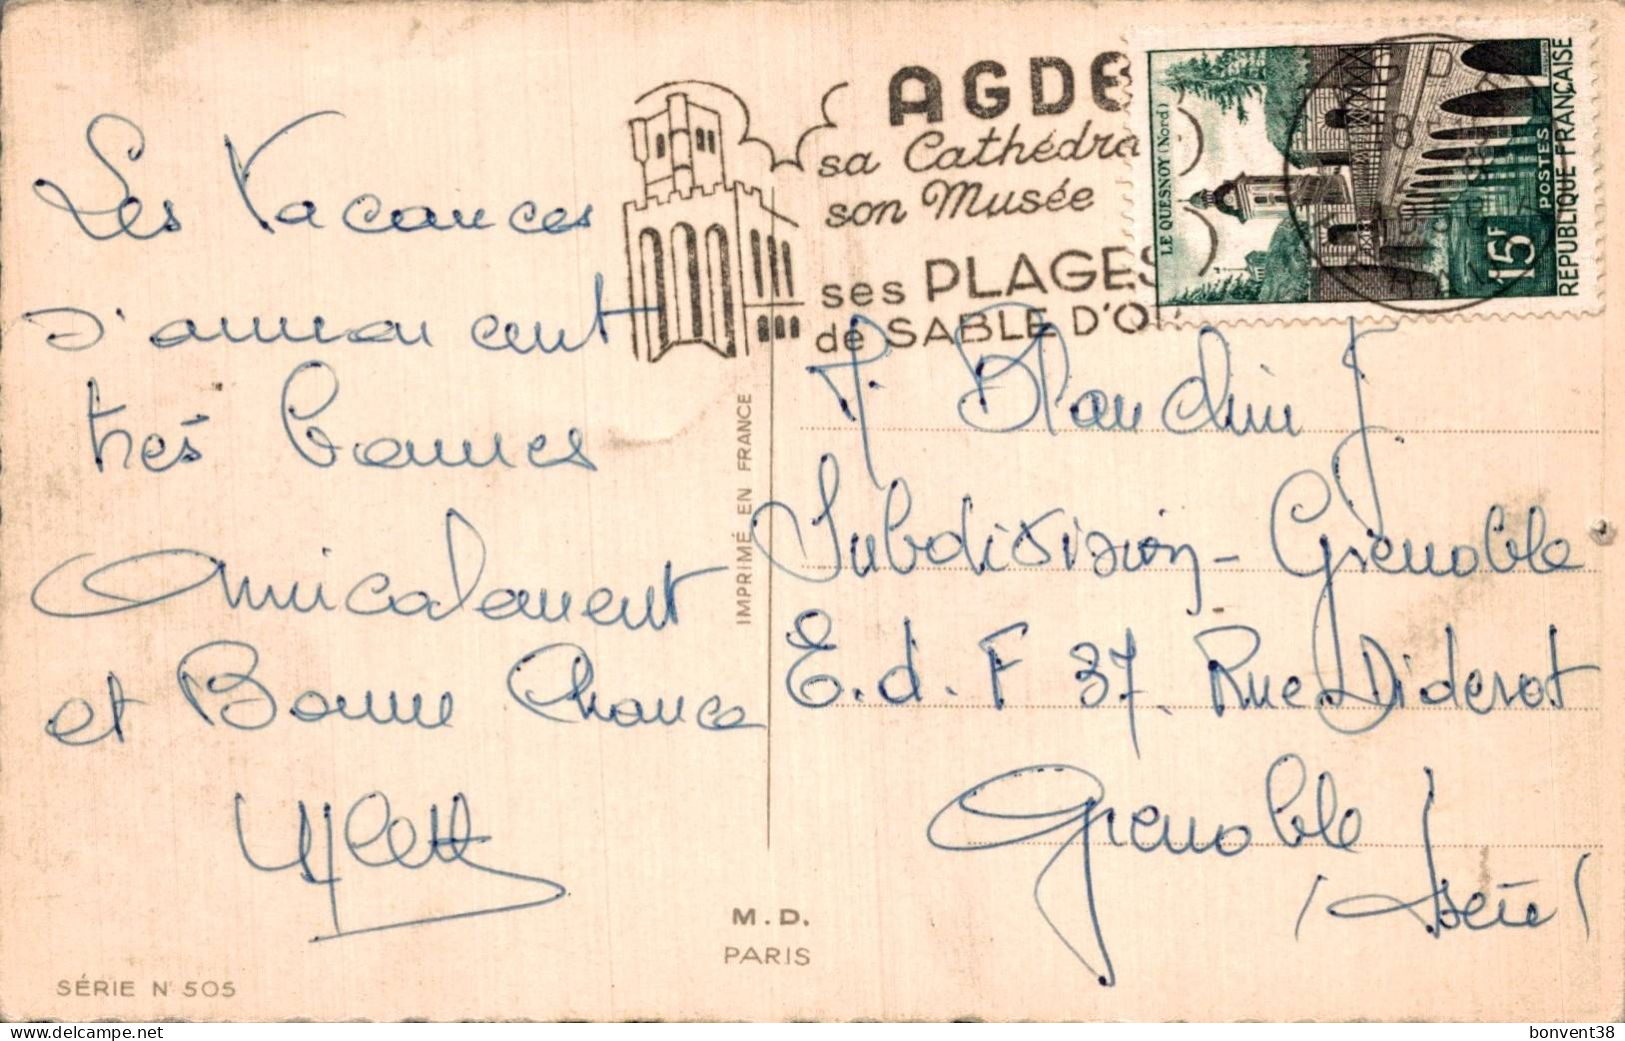 Les Vacances
s'annoncent
très bonnes
Amicalement
et Bonne Chance
AGDE
sa Cathédra
son Musée
ses PLAGES
de SABLE D'O
LE QUESNOY (Nord)
15F
POSTES
REPUBLIQUE FRANÇAISE
IMPRIMÉ EN FRANCE
Blanchin J.
Subdivision - Grenoble
E.d.F 37. Rue Diderot
Grenoble
(Isère)
M.D.
PARIS
SÉRIE N° 505
bonvent38